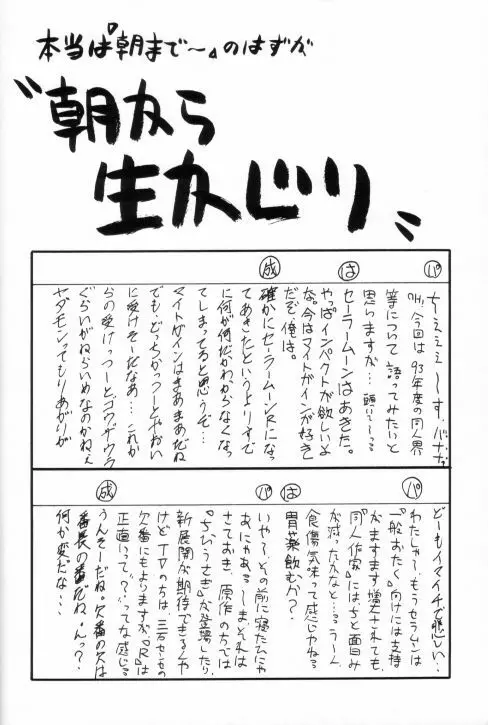 本当は『朝まで〜』のはずが
〝朝から
生かじり〟
パ
ちぇぇぇ〜す、バナナ
OH、今回は93年度の同人界
等について語ってみたいと
思いますが…
は
セーラームーンはあきた。
やっぱインパクトが欲しいよ
な。今はマイトガインが好き
だぞ、俺は。
成
確かにセーラームーンRになっ
てあきたというよりすで
に何が何だかわからなくなっ
てしまってると思うぞ…
マイトガインはまあまあだね
でも、どっちかっつーとやおい
に受けそーだなあ…これか
らの受けっつーとゴウザウラ
ぐらいがねらいめなのかねぇ
ヤダモンってもりあがりが
パ
どーもイマイチで悲しい…
わたしゃーもうセラムンは
『一般おたく』向けには支持
がますます増大されても、
『同人作家』にはちと面白み
が減ったかなと…うーん
食傷気味って感じかねる
は
胃薬飲むか?
パ
いや〜、その前に寝たひにゃ
あ、にゃあるしまそれは
さておき、原作の方では
『ちびうさぎ』が登場したり、
新展開が期待できるんや
けどTVのちは、三石センセの
欠番にもよりますが、『R』は
正直いって?ってな感じる
成
うんそーだね。欠番の欠は
番長の番だね。んっ?
何か変だな…